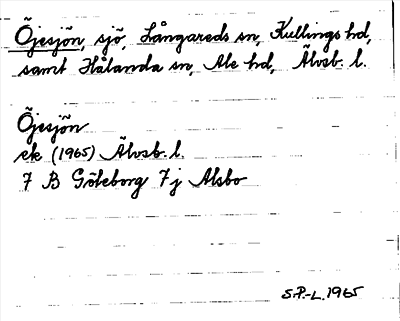 Öjesjön, sjö, Långareds sn, Kullings hd,
samt Hålanda sn, Ale hd, Älvsb. l.
Öjesjön
ek (1965) Älvsb. l.
7 B Göteborg 7j Alsbo
S.P.-L. 1965